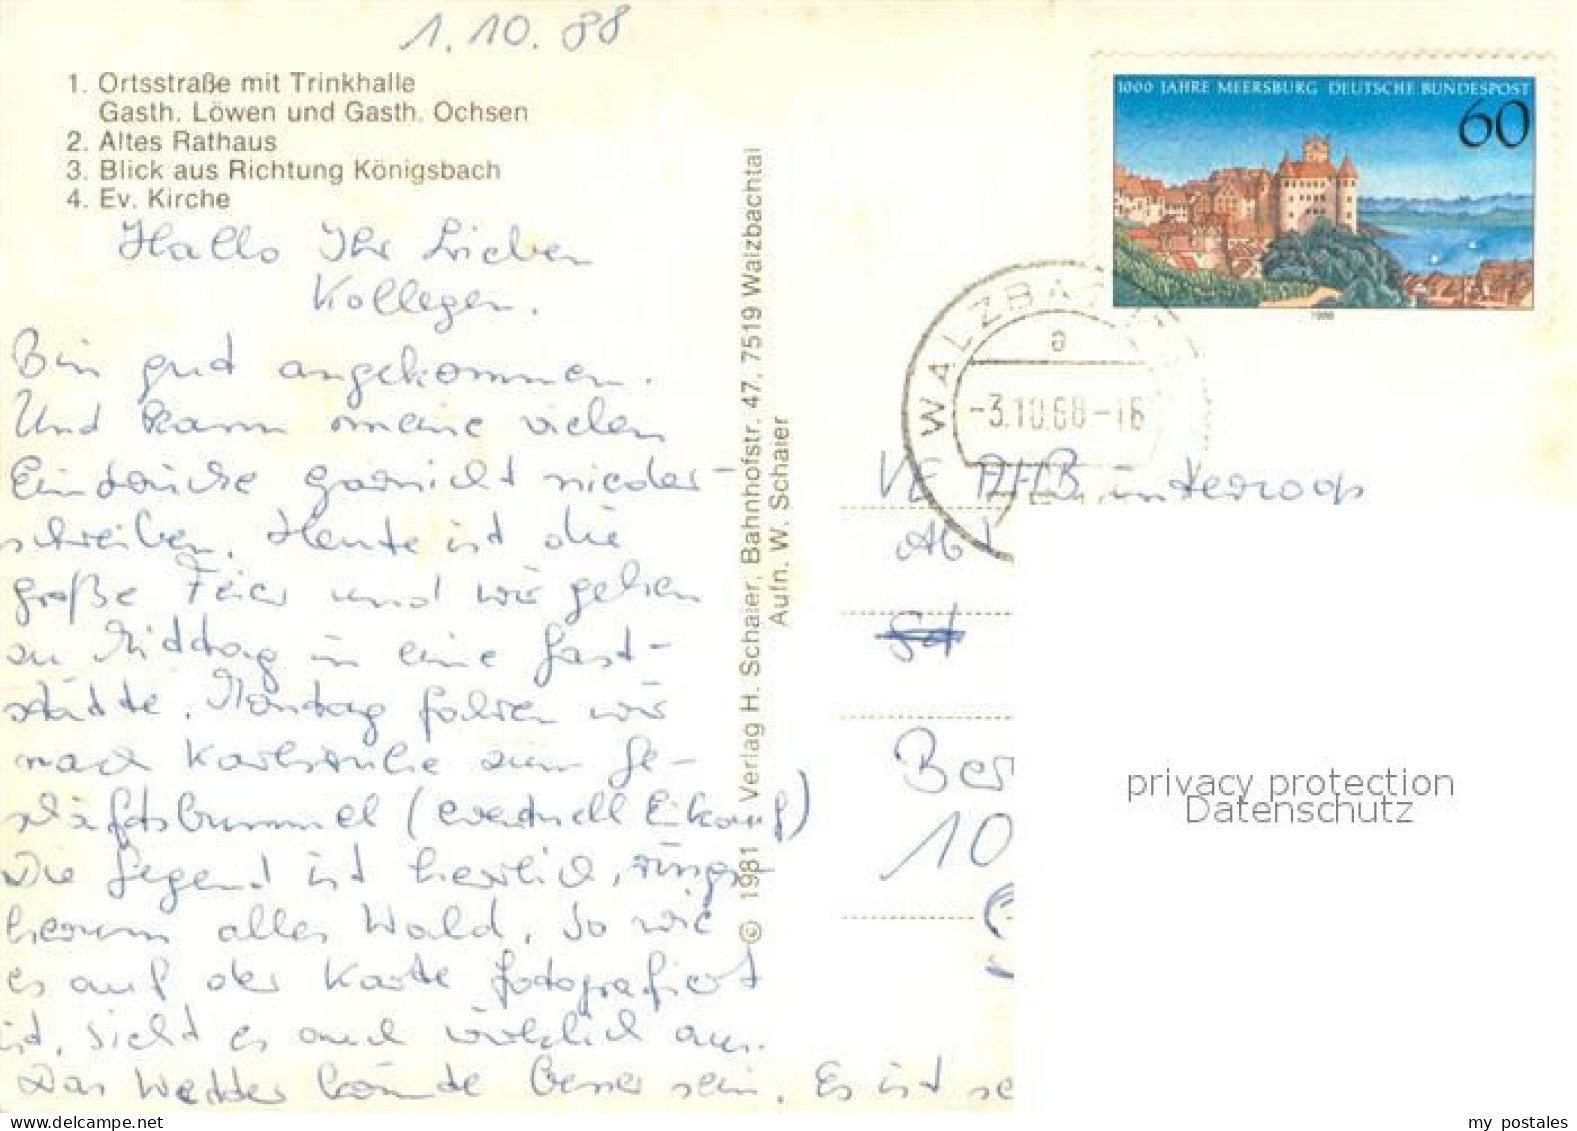 1.10.88
1. Ortsstraße mit Trinkhalle
Gasth. Löwen und Gasth. Ochsen
2. Altes Rathaus
3. Blick aus Richtung Königsbach
4. Ev. Kirche
Hallo Ihr Lieben
Kollegen.
Bin gut angekommen.
Und kann meine vielen
Eindrücke garnicht nieder-
schreiben. Heute ist die
große Feier und wir gehen
zu Mittag in eine Gast-
stätte. Montag fahren wir
nach Karlsruhe zum Ge-
schäftsbummel (eventuell Eikauf)
Die Gegend ist herrlich, rings-
herum alles Wald, so wie
es auf der Karte fotografiert
ist, sieht es auch wirklich aus.
Das Wetter könnte besser sein. Es ist se
© 1981 Verlag H. Schaier, Bahnhofstr. 47, 7519 Walzbachtal
Aufn. W. Schaier
1000 JAHRE MEERSBURG DEUTSCHE BUNDESPOST
60
1988
WALZBA
a
-3.10.88-16
VE AHB intercoop
Abt
Ber
10
privacy protection
Datenschutz
my postales